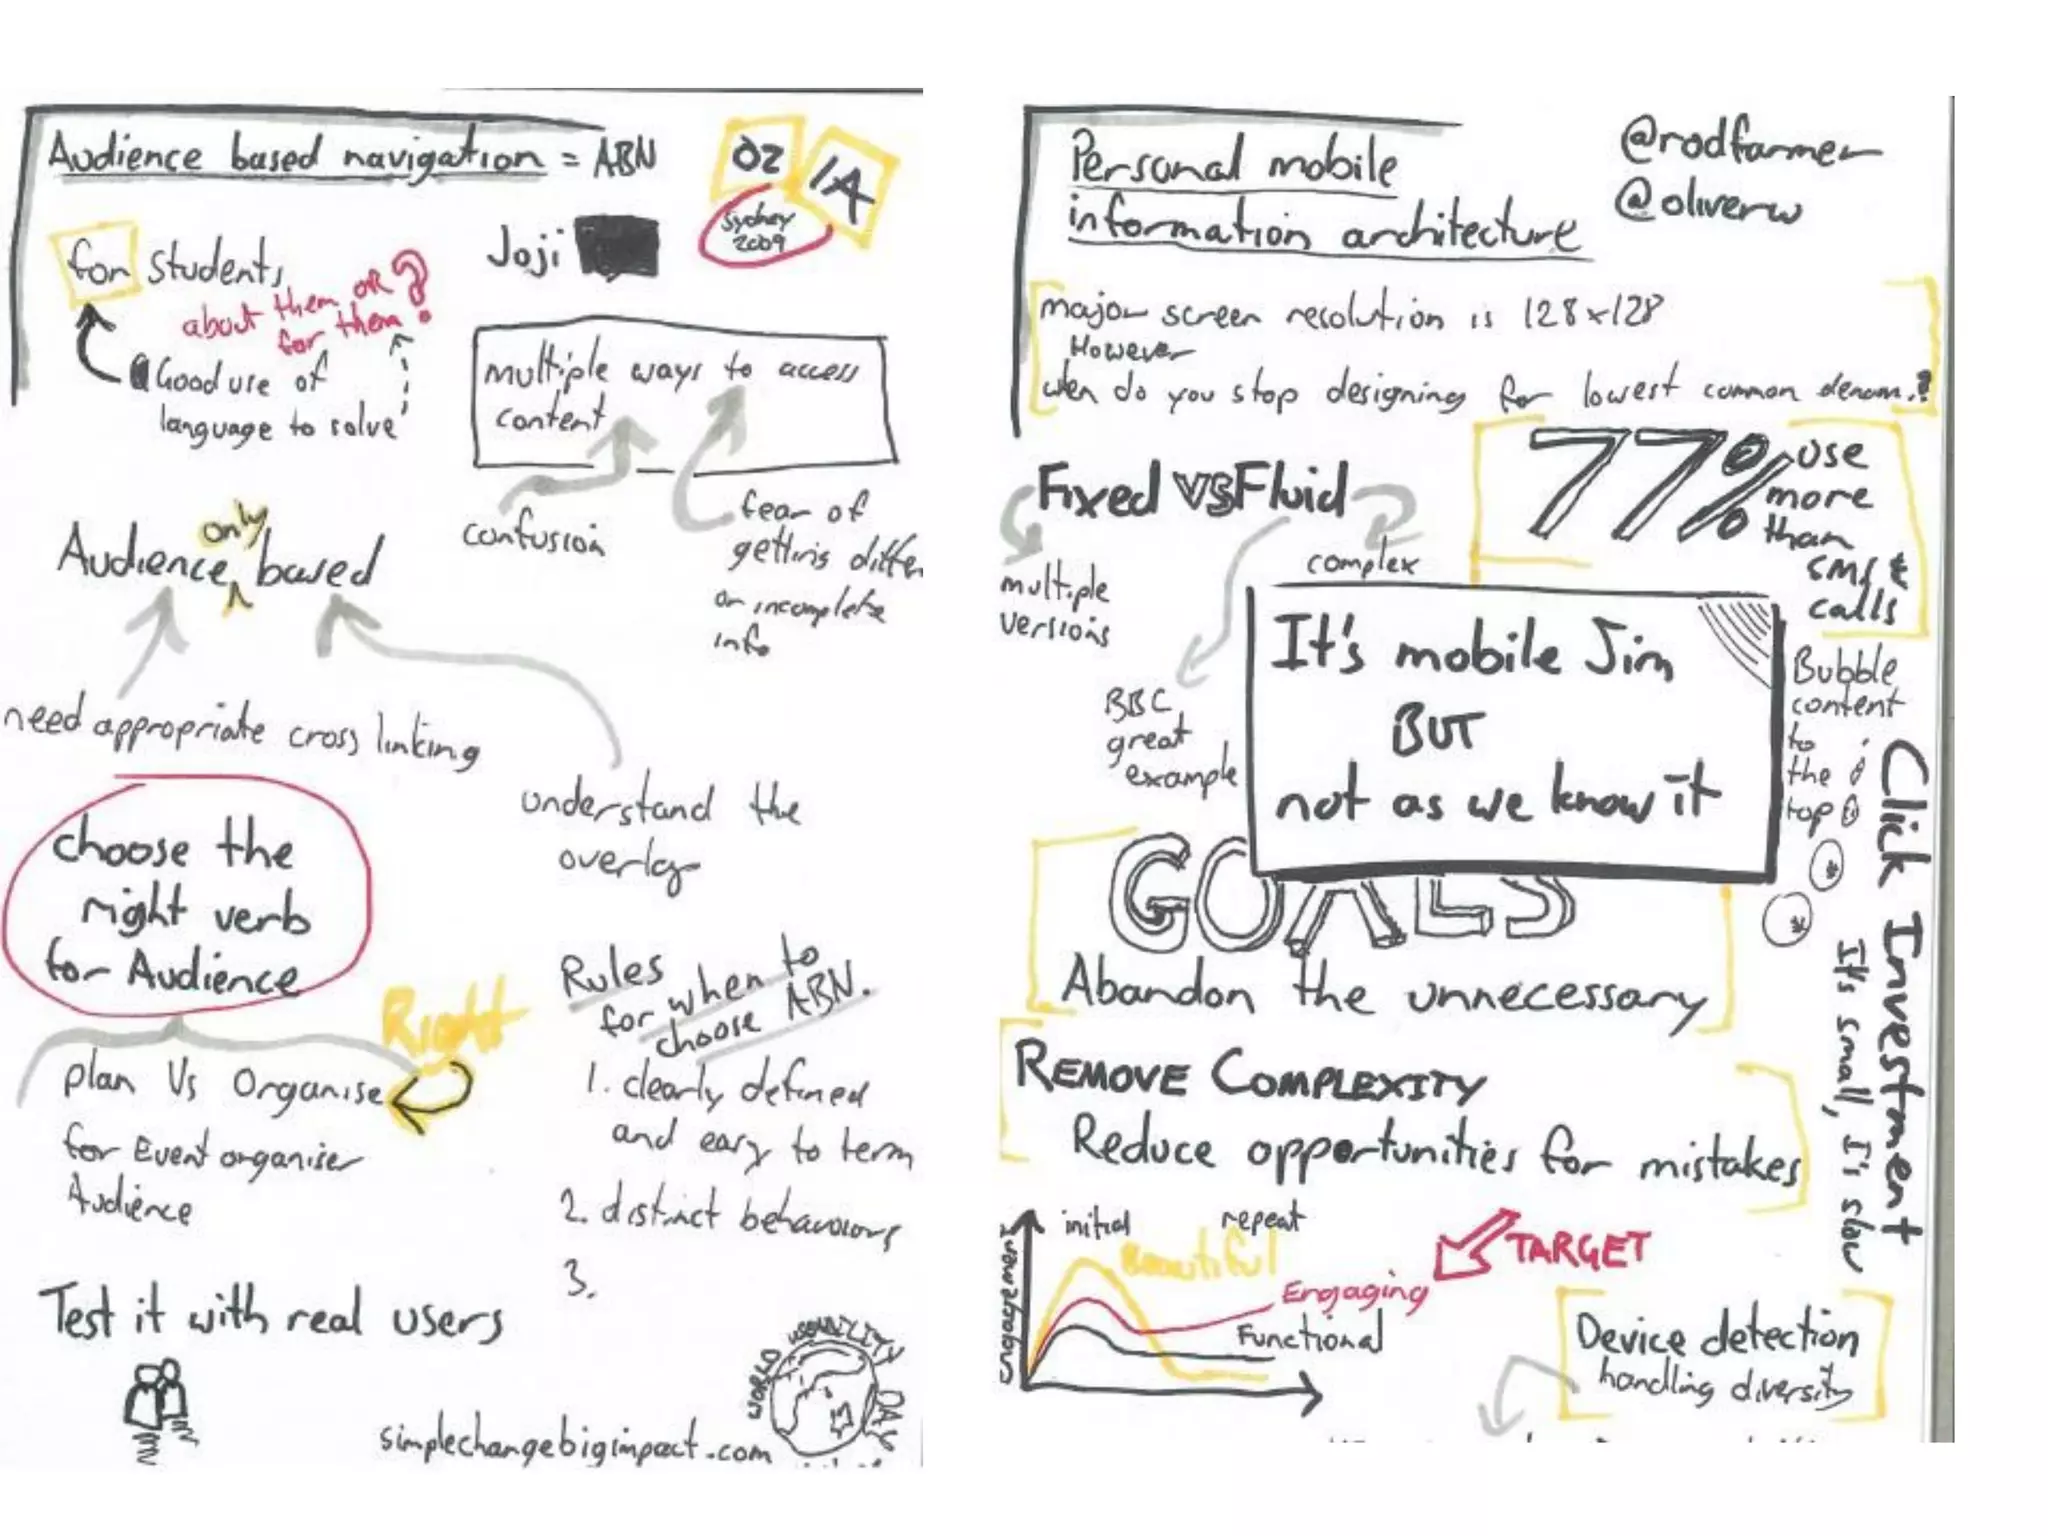 Audience based navigation = ABN
OZ
IA
Sydney
2009
Joji
for students
about them OR
for them?
Good use of
language to solve
multiple ways to access
content
confusion
fear of
getting differ
or incomplete
info
Audience only based
need appropriate cross linking
understand the
overlap
choose the
right verb
for Audience
Right
plan Vs Organise
for Event organiser
Audience
Rules
for when to
choose ABN.
1. clearly defined
and easy to term
2. distinct behaviours
3.
Test it with real users
simplechangebigimpact.com
WORLD USABILITY DAY
Personal mobile
information architecture
@rodfarmer
@oliverw
major screen resolution is 128x128
However
when do you stop designing for lowest common denom.?
77% use
more
than
sms &
calls
Fixed vs Fluid
multiple
versions
complex
BBC
great
example
It's mobile Jim
BUT
not as we know it
Bubble
content
to
the
top
Click Investment
It's small, I's slow
GOALS
Abandon the unnecessary
REMOVE COMPLEXITY
Reduce opportunities for mistakes
engagement
initial
repeat
Beautiful
Engaging
TARGET
Functional
Device detection
handling diversity